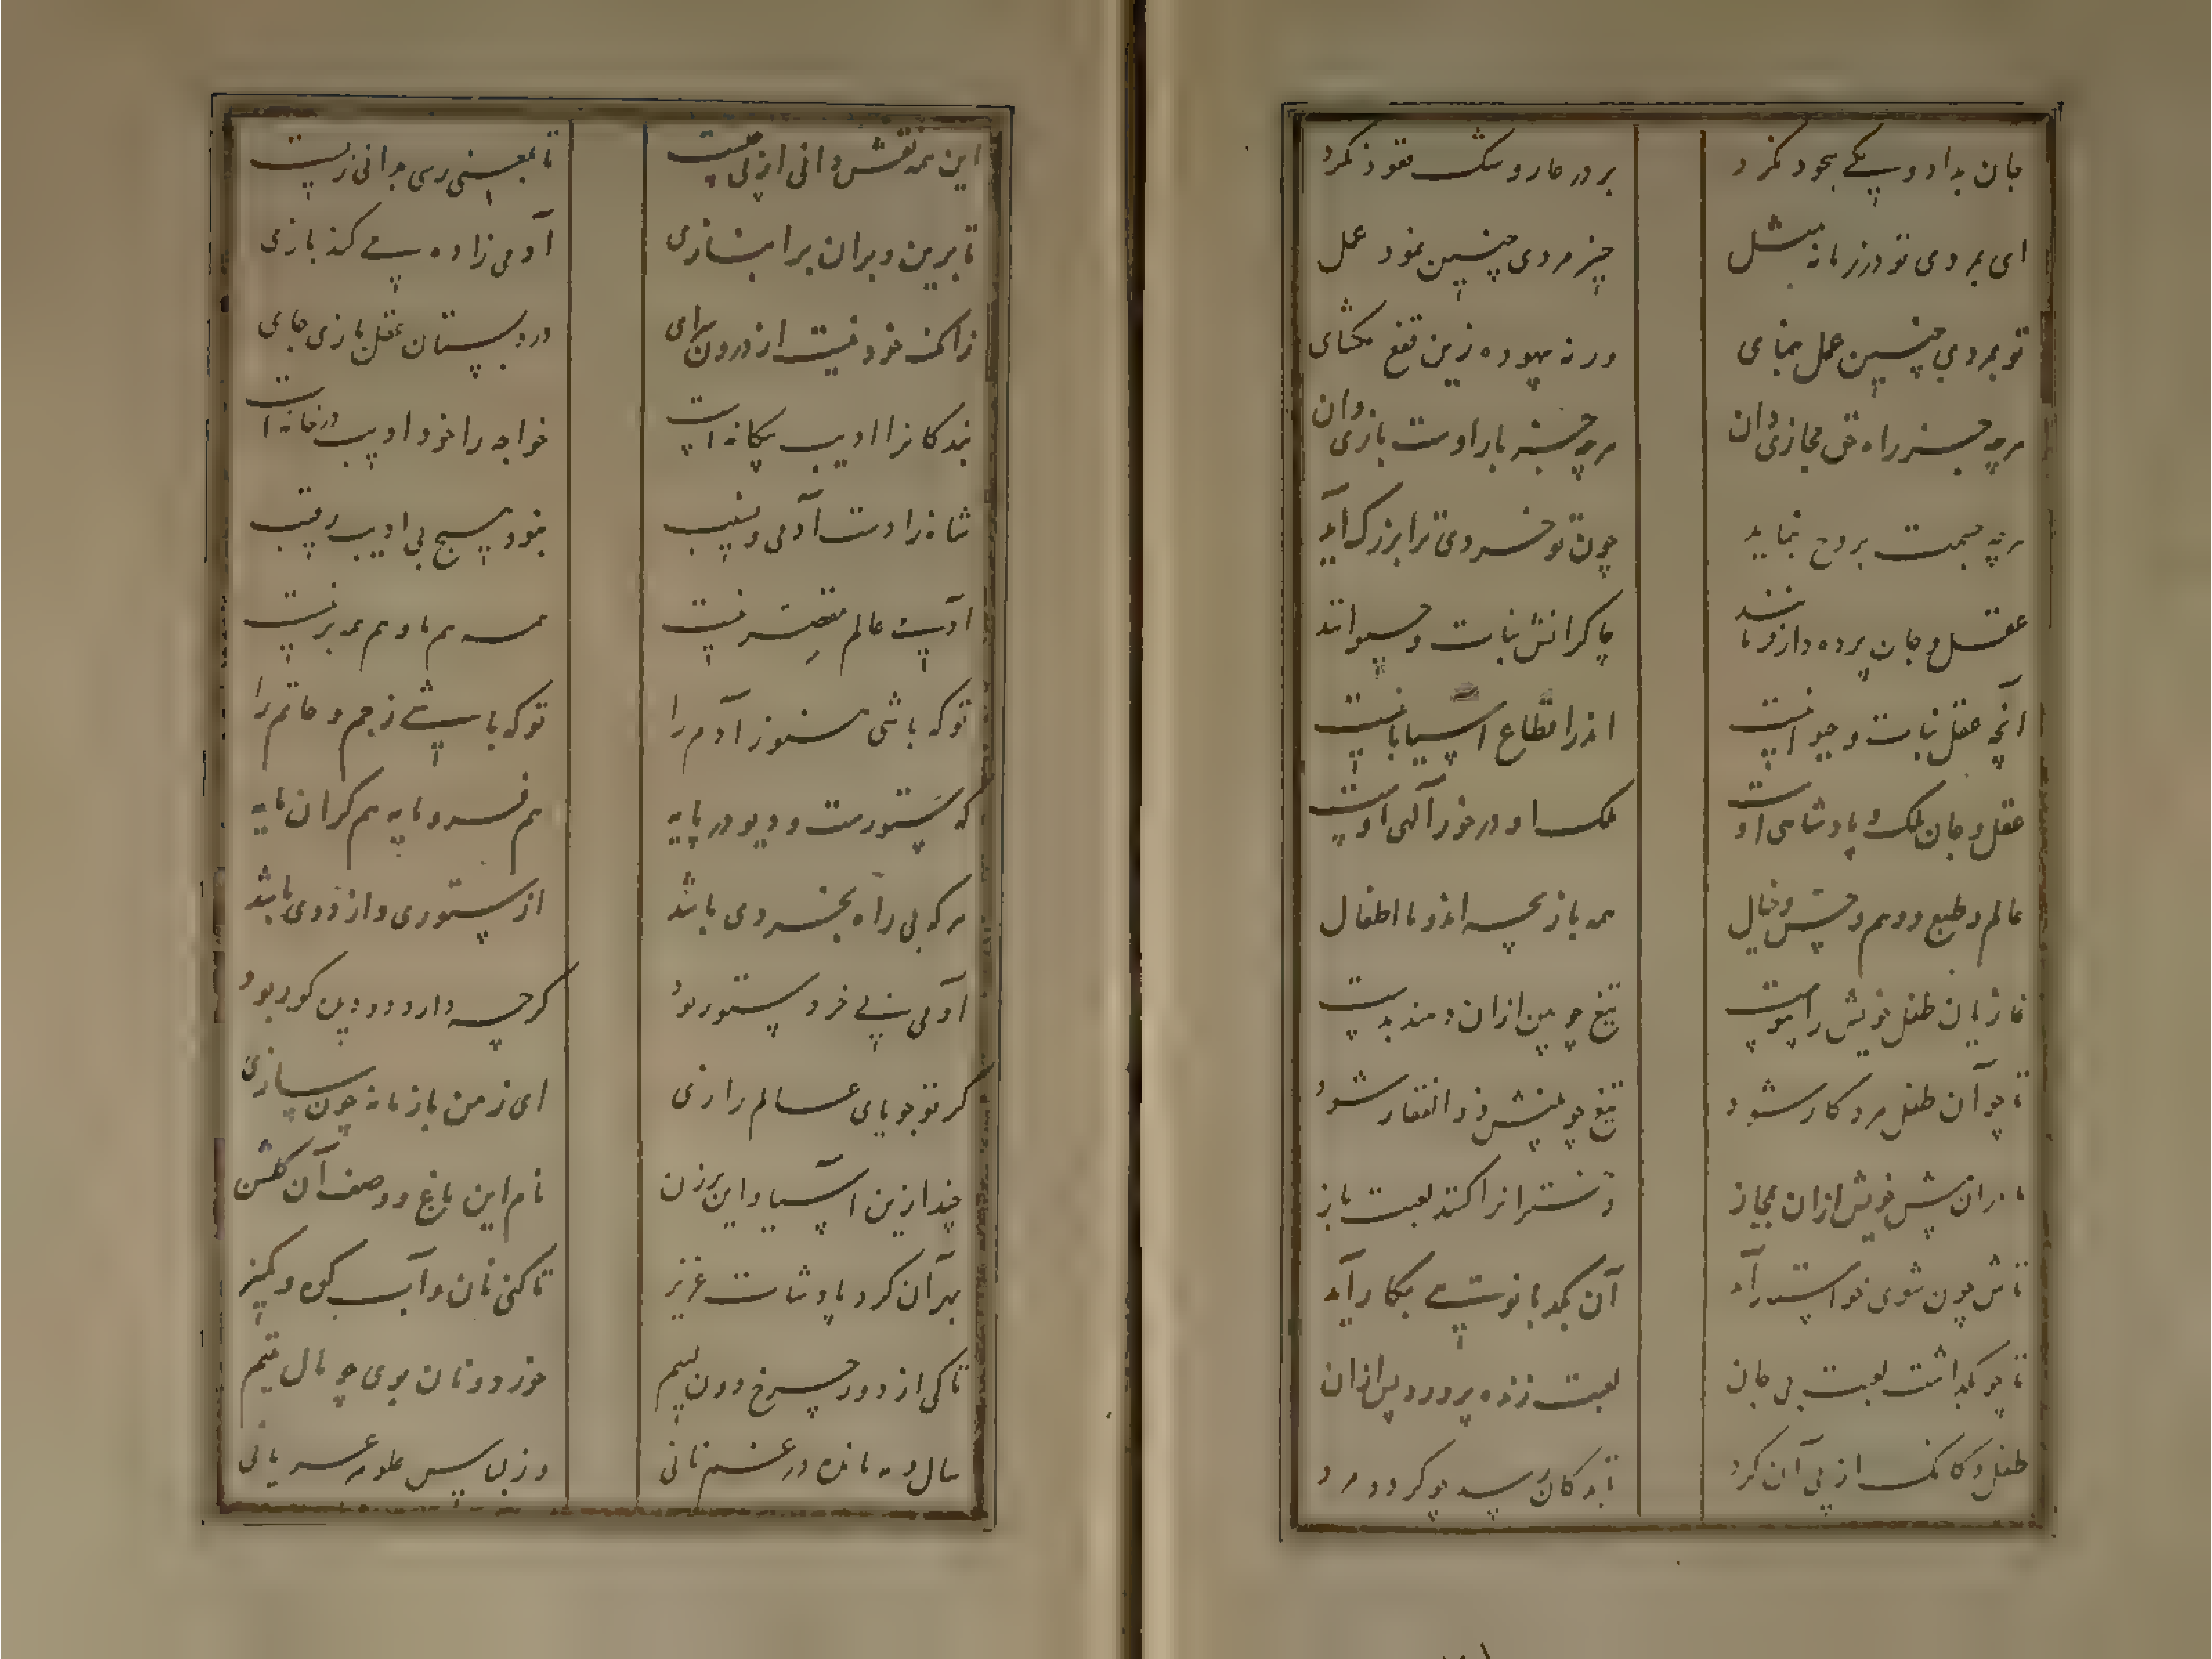 جان بداد و یکی سجود نکرد
بر در مار و سگ نقود نکرد
ای بمردی تو در زمانه مثل
چیز مردی چنین نمود عمل
تو بمردی چنین عمل بنمای
ورنه بیهوده زین قفع مکشای
هرچه جز راه حق مجازی دان
هرچه جز بار اوست بازی دان
هرچه جسمت بروح بنماید
چون تو خردی ترا بزرگ آید
عقل و جان پرده دار فرمانند
چاکرانش نبات و حیوانند
آنچه عقل نبات و حیوانیست
اندر اقطاع آسیابانیست
عقل و جان ملک و پادشاهی اوست
ملک او در خور الهی اوست
عالم و طبع و وهم و حس و خیال
همه بازیچه اند و ما اطفال
غازیان طفل خویش را پیوست
تیغ چوبین ازان دهند بدست
تا چو آن طفل مرد کار شود
تیغ چوبینش ذوالفقار شود
مادران پیش خویش ازان بمجاز
دخترانرا کنند لعبت باز
تاش چون شوی خواستار آید
آن بکدبانویی بکار آید
تا چو بگذاشت لعبت بی جان
لعبت زنده پرورد پس ازان
طفل و کانک از پی آن کرد
تا بدکان رسد چو گردد مرد
این همه نقش دانی از پی چیست
تا بمعنی رسی بدانی زیست
تا برین و بران برا بنازی
آدمی زاده پی کند بازی
زانک خود نیست از درون سرای
در دبستان عقل بازی جای
بندگانرا ادیب بیگانه است
خواجه را خود ادیب در خانه است
شاه زادست آدمی و نسیب
نبود هیچ بی ادیب رقیب
آدمی عالم مختصر نیست
همه هم با و هم همه بر نیست
تو که باشی هنوز آدم را
تو که باشی ز جم و خاتم را
که ستورست و دیو در پایه
هم فرومایه هم گران مایه
هرکه بی راه بخردی باشد
از ستوری و از ددی باشد
آدمی بی خرد ستور بود
گرچه دارد دو دیده کور بود
گر تو جویای عالم رازی
ای زمن با زمانه چون سازی
چند ازین آسیا و این برزن
نام این باغ و وصف آن گلشن
بهر آن کرد پادشات عزیز
تا کنی نان و آب کوه و کمیز
تا کی از دور چرخ دون لئیم
خورد دونان بوی چو مال یتیم
سال و مه مانده در غم نانی
وز لباس علوم عریانی